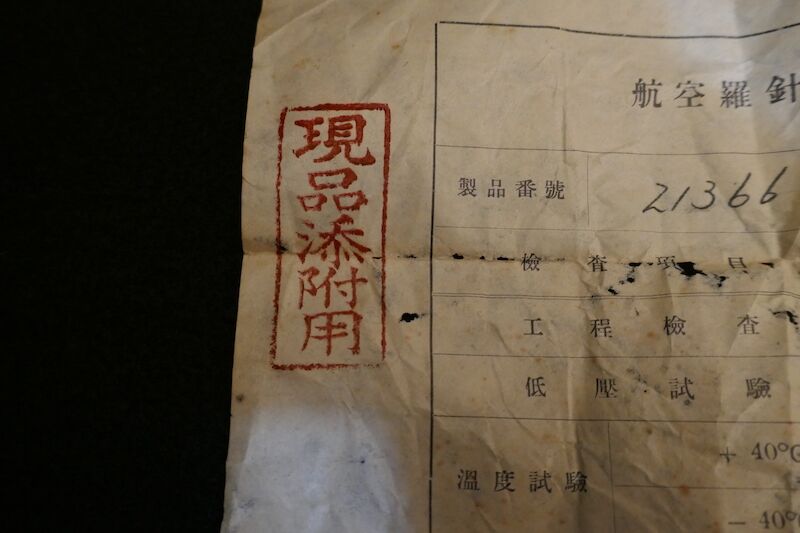 現品添附用
航空羅針
製品番號 21366
檢査項目
工程檢査
低壓試驗
溫度試驗
+ 40°C
- 40°C